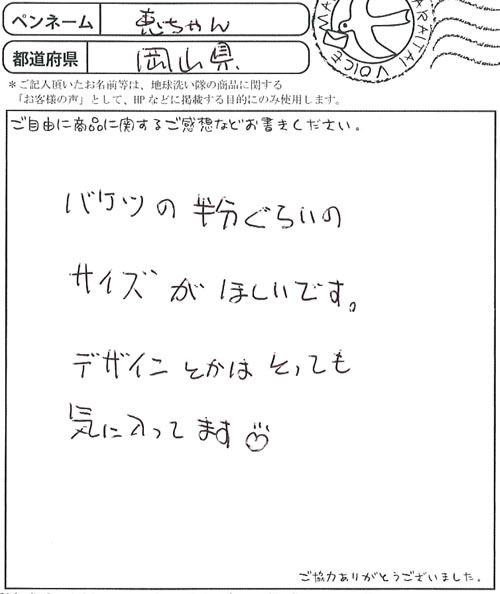 ペンネーム 恵ちゃん
都道府県 岡山県.
＊ご記入頂いたお名前等は、地球洗い隊の商品に関する
「お客様の声」として、HPなどに掲載する目的にのみ使用します。
VOICE MA ARAITAI
ご自由に商品に関するご感想などお書きください。
バケツの半分ぐらいの
サイズがほしいです。
デザインとかはとっても
気に入ってます
ご協力ありがとうございました。